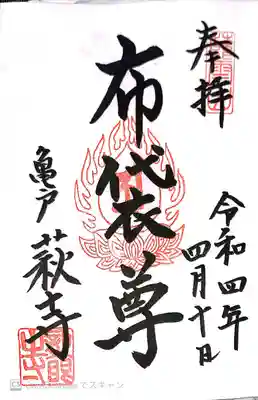 奉拝
令和四年
四月十日
布袋尊
亀戸
萩寺
でスキャン